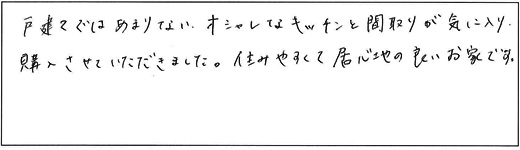 戸建てではあまりない、オシャレなキッチンと間取りが気に入り、
購入させていただきました。住みやすくて居心地の良いお家です。